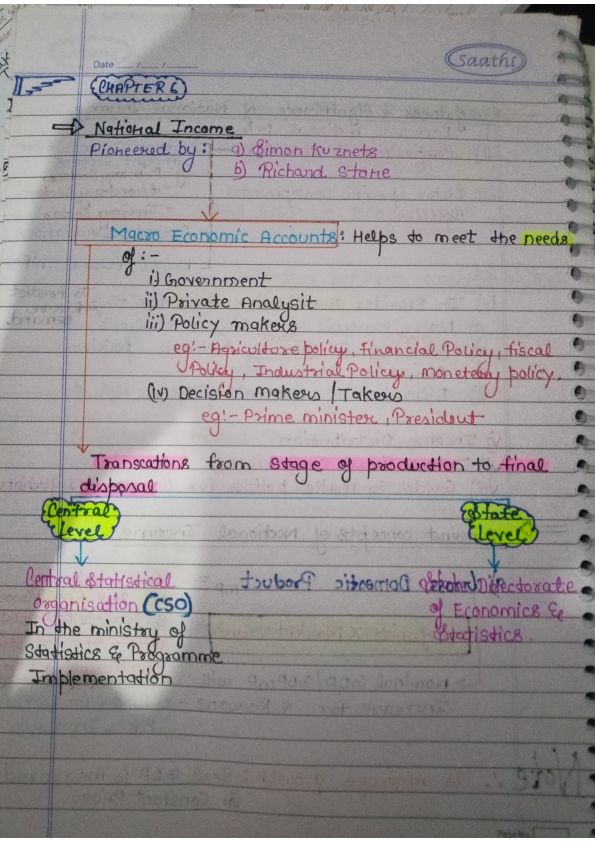 Date ___/___/___
Saathi
CHAPTER 6
⇒ National Income
Pioneered by: a) Simon Kuznets
b) Richard Stone
Macro Economic Accounts: Helps to meet the needs
of :-
i) Government
ii) Private Analysit
iii) Policy makers
eg:- Agriculture policy, Financial Policy, fiscal
Policy, Industrial Policy, monetery policy.
(iv) Decision makers / Takers
eg:- Prime minister, Presidout
Transcations from stage of production to final
disposal
Central
Level
State
Level
Central Statistical
Organisation (CSO)
In the ministry of
Statistics & Programme
Implementation
Directorate
of Economics &
Statistics
Page No.